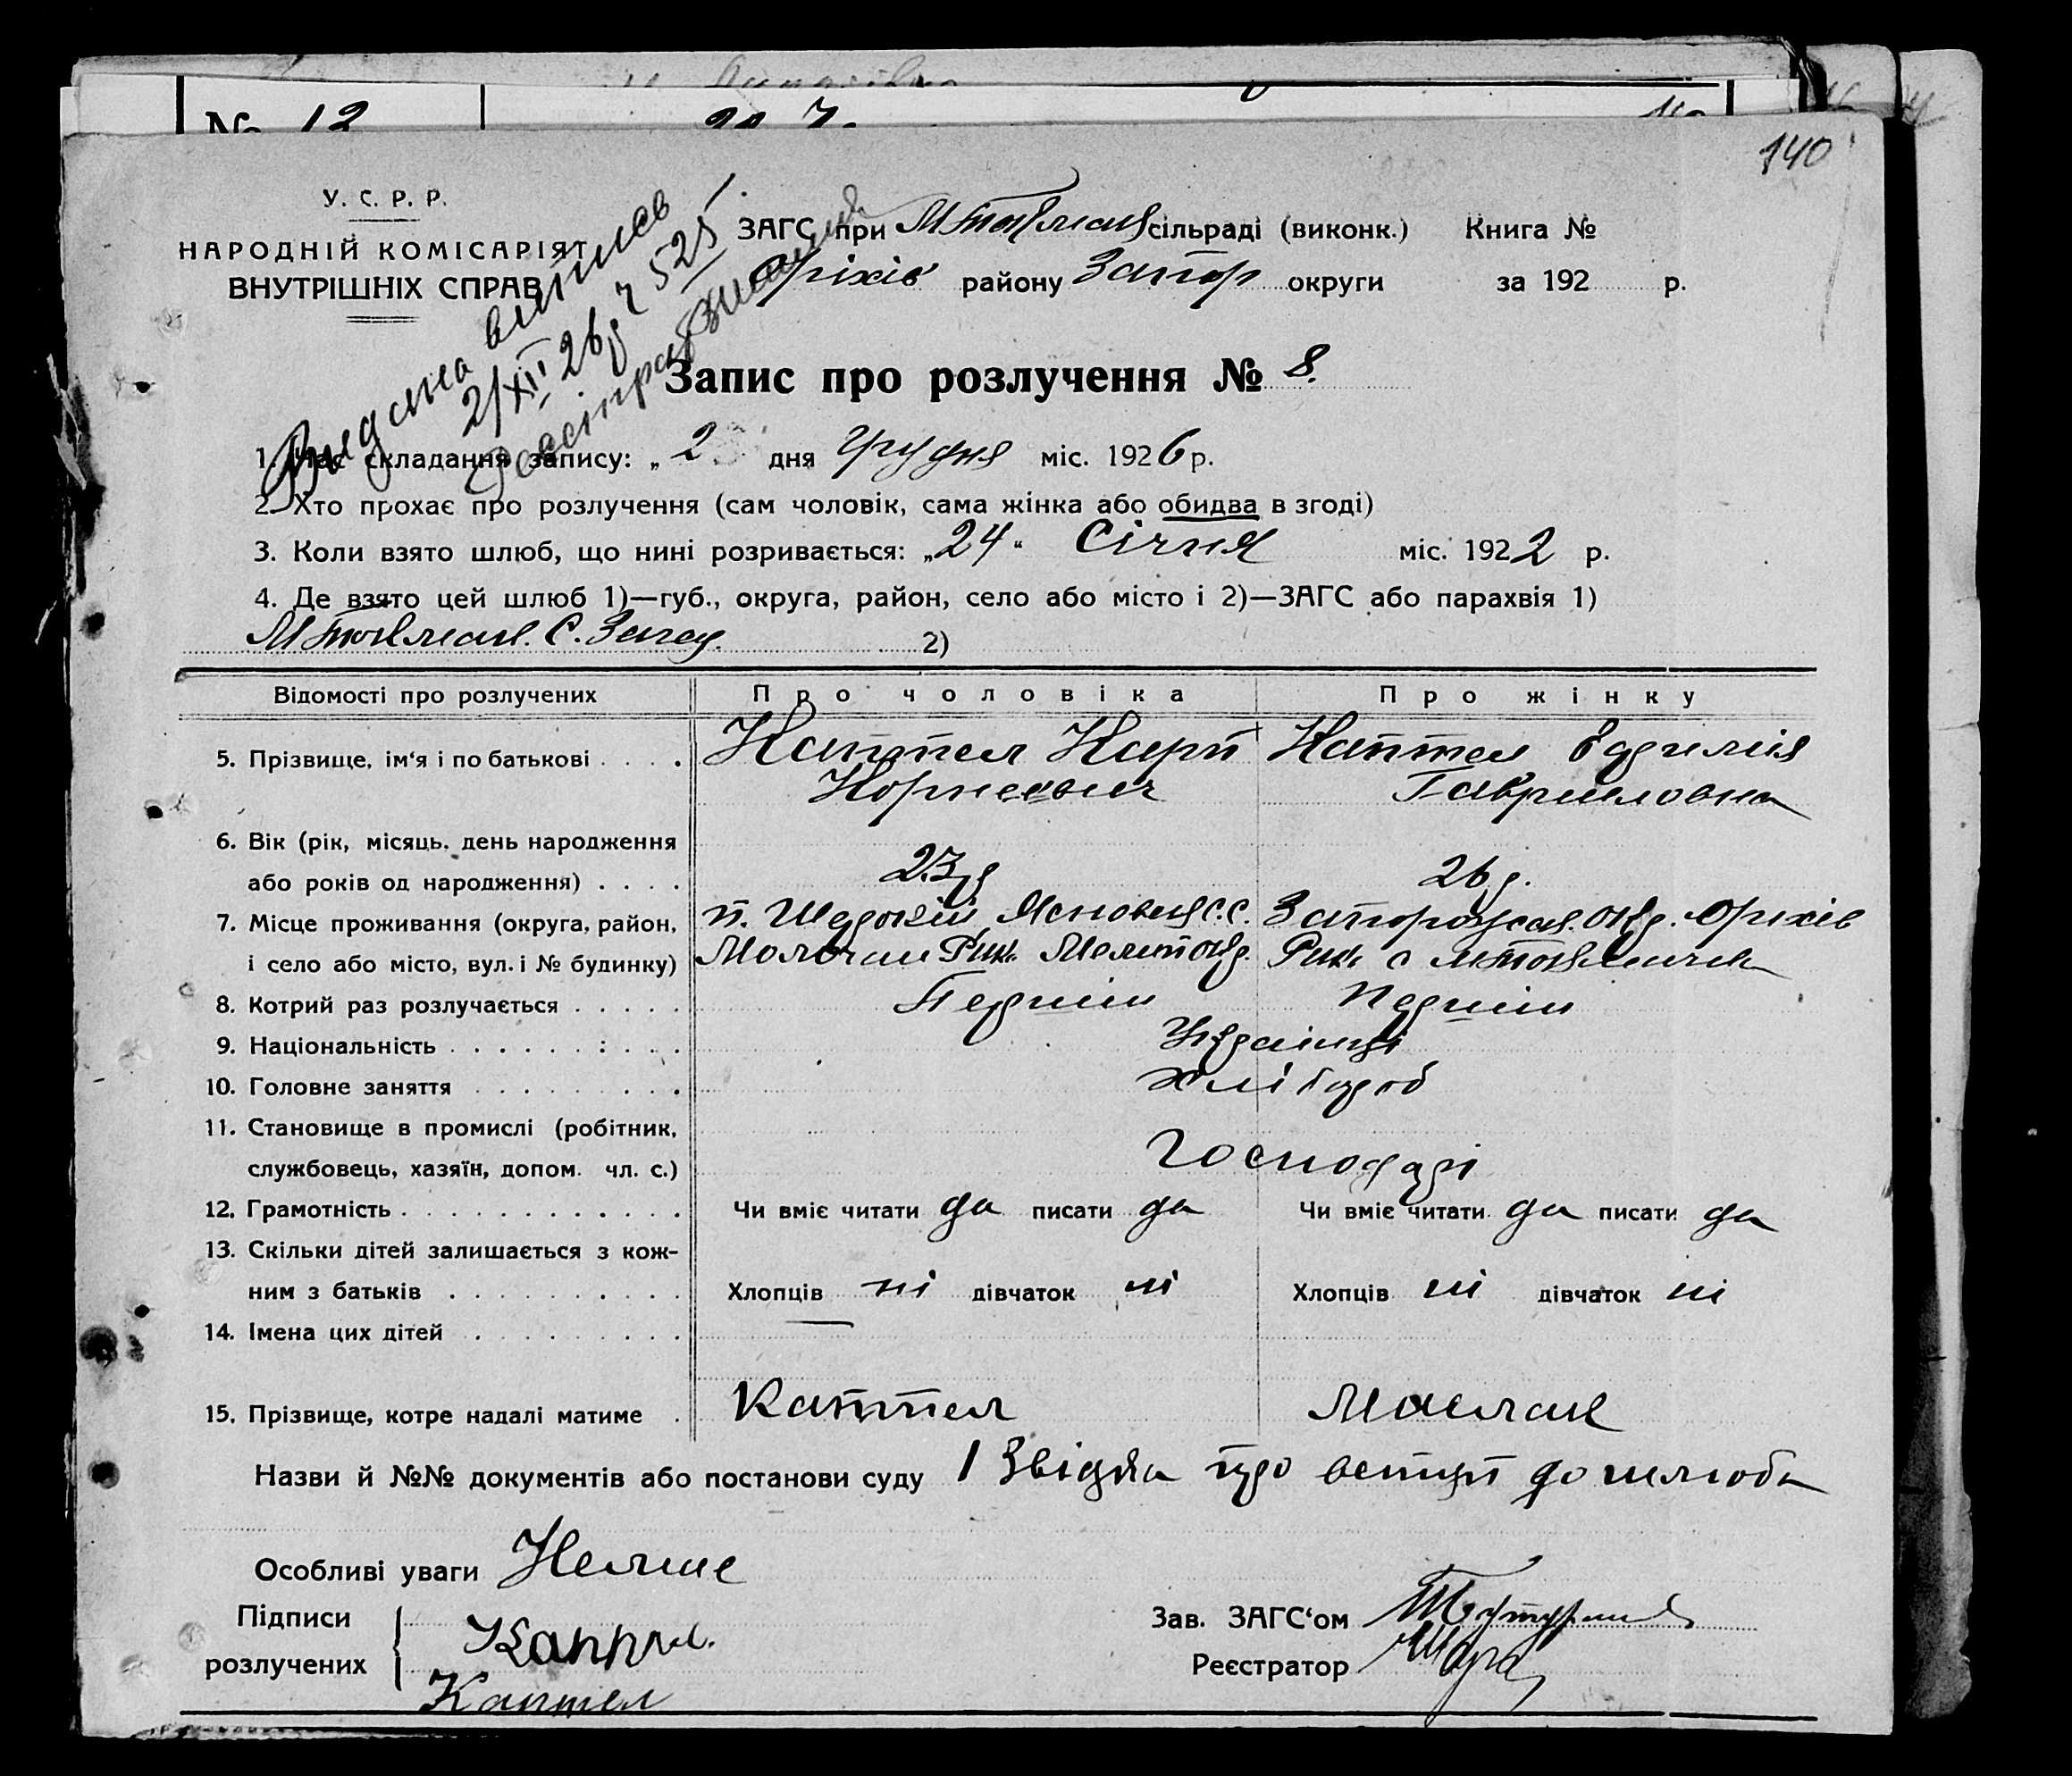 № 12
140
У. С. Р. Р.
НАРОДНІЙ КОМІСАРІЯТ
ВНУТРІШНІХ СПРАВ
Видана випись
2/XII 26 р
525
ЗАГС при сільраді (виконк.) Книга №
Оріхів району Запор округи за 192 р.
Запис про розлучення № 8.
1. Час складання запису: „ 2 дня Грудня міс. 1926 р.
2. Хто прохає про розлучення (сам чоловік, сама жінка або обидва в згоді)
3. Коли взято шлюб, що нині розривається: „24“ Січня міс. 1922 р.
4. Де взято цей шлюб 1)—губ., округа, район, село або місто і 2)—ЗАГС або парахвія 1)
2)
Відомості про розлучених Про чоловіка Про жінку
5. Прізвище, ім‘я і по батькові . . . . Каппел Карп Каппел
Корнеевич Гавриловна
6. Вік (рік, місяць, день народження
або років од народження) . . . . 23 р 26 р.
7. Місце проживання (округа, район, Оріхів
і село або місто, вул. і № будинку)
8. Котрий раз розлучається . . . . . Перший Перший
9. Національність . . . . . . : . . . Українці
10. Головне заняття . . . . . . . . . хлібороб
11. Становище в промислі (робітник,
службовець, хазяїн, допом. чл. с.) Господарі
12. Грамотність . . . . . . . . . . . . Чи вміє читати да писати да Чи вміє читати да писати да
13. Скільки дітей залишається з кож-
ним з батьків . . . . . . . . . . Хлопців ні дівчаток ні Хлопців ні дівчаток ні
14. Імена цих дітей . . . . . . . . .
15. Прізвище, котре надалі матиме . Каппел Маслак
Назви й №№ документів або постанови суду 1 Звідка про вступ до шлюба
Особливі уваги Немає
Підписи
розлучених
Каппел.
Каппел
Зав. ЗАГС‘ом
Реєстратор